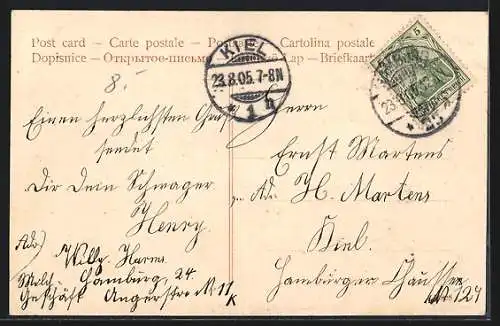 Post card – Carte postale – Postkarte Cartolina postale
Dopisnice – Открытое письмо – Briefkaart
8.
KIEL
23.8.05. 7-8N
* 1 h
5
Einen herzlichsten Gruß
sendet
Dir Dein Schwager
Henry
Herrn
Ernst Martens
Ad. H. Martens
Kiel.
Hamburger Chaussee
No 124
Adr.
Willy Harms
Hamburg, 24.
Geschäft Angerstr. 11
K